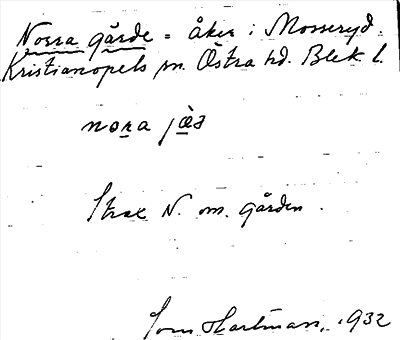 Norra gärde = åker i Mosseryd.
Kristianopels sn. Östra hd. Blek. l.
Strax N. om gården.
Hartman, 1932